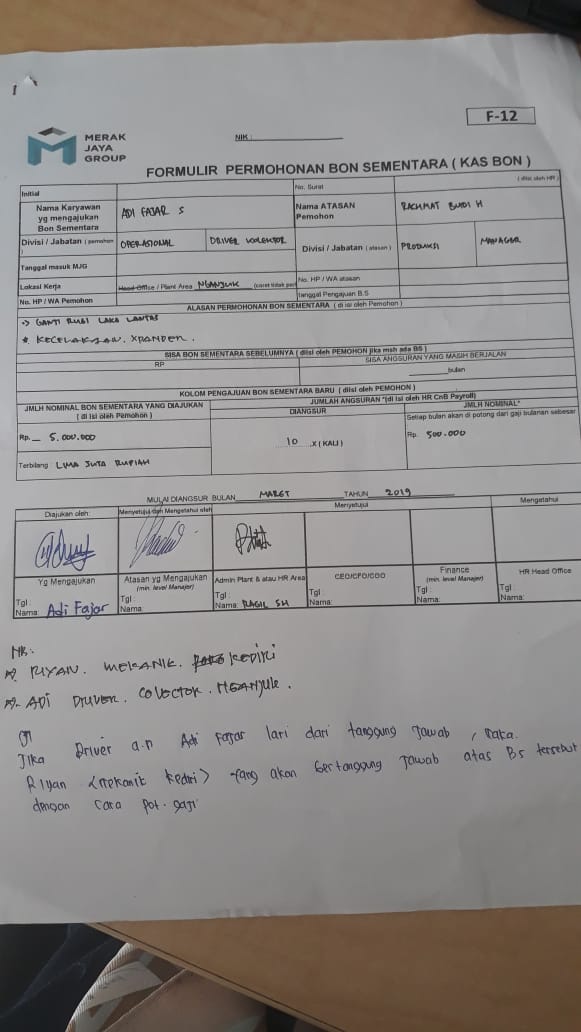 F-12
MERAK
JAYA
GROUP
NIK :
FORMULIR PERMOHONAN BON SEMENTARA ( KAS BON )
Initial
No. Surat
( diisi oleh HR )
Nama Karyawan
yg mengajukan
Bon Sementara
ADI FAJAR S
Nama ATASAN
Pemohon
RACHMAT BUDI H
Divisi / Jabatan ( pemohon )
OPERASIONAL
DRIVER KOLEKTOR
Divisi / Jabatan ( atasan )
PRODUKSI
MANAGER
Tanggal masuk MJG
Lokasi Kerja
Head Office / Plant Area NGANJUK (coret tidak per
No. HP / WA atasan
No. HP / WA Pemohon
tanggal Pengajuan B.S
ALASAN PERMOHONAN BON SEMENTARA ( di isi oleh Pemohon )
-> GANTI RUGI LAKA LANTAS
* KECELAKAAN. XPANDER.
SISA BON SEMENTARA SEBELUMNYA ( diisi oleh PEMOHON jika msh ada BS )
RP
SISA ANGSURAN YANG MASIH BERJALAN
bulan
KOLOM PENGAJUAN BON SEMENTARA BARU ( diisi oleh PEMOHON )
JMLH NOMINAL BON SEMENTARA YANG DIAJUKAN
( di isi oleh Pemohon )
JUMLAH ANGSURAN *(di isi oleh HR CnB Payroll)
DIANGSUR
JMLH NOMINAL*
Setiap bulan akan di potong dari gaji bulanan sebesar
Rp. 5.000.000
10 X ( KALI )
Rp. 500.000
Terbilang : LIMA JUTA RUPIAH
MULAI DIANGSUR BULAN MARET TAHUN 2019
Diajukan oleh:
Menyetujui dan Mengetahui oleh
Menyetujui
Mengetahui
Yg Mengajukan
Atasan yg Mengajukan
(min. level Manajer)
Admin Plant & atau HR Area
CEO/CFO/COO
Finance
(min. level Manajer)
HR Head Office
Tgl :
Nama: Adi Fajar
Tgl :
Nama:
Tgl :
Nama: RAGIL SH
Tgl :
Nama:
Tgl :
Nama:
Tgl :
Nama:
NB:
RIYAN. MEKANIK. KEDIRI
ADI DRIVER. COLECTOR. NGANJUK.
Jika Driver a.n Adi Fajar lari dari tanggung jawab, maka
Riyan <mekanik kediri> yang akan bertanggung jawab atas BS tersebut
dengan cara pot. gaji